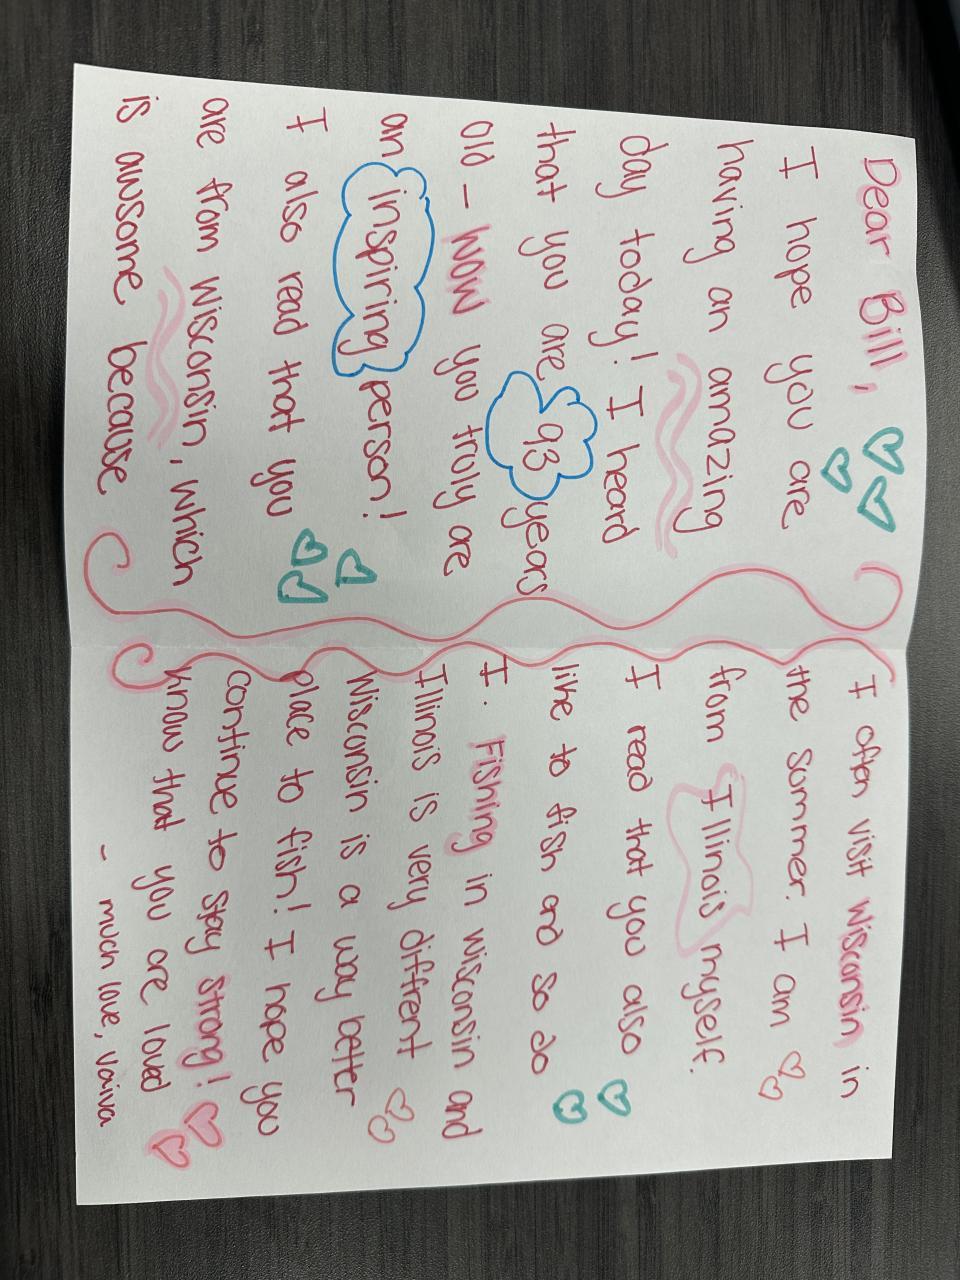 Dear Bill,
I hope you are
having an amazing
day today! I heard
that you are 93 years
old - wow you truly are
an inspiring person!
I also read that you
are from Wisconsin, which
is awsome because
I often visit Wisconsin in
the summer. I am
from Illinois myself.
I read that you also
like to fish and so do
I. Fishing in Wisconsin and
Illinois is very diffrent
Wisconsin is a way better
place to fish! I hope you
continue to stay strong!
know that you are loved
- much love, Vaiva